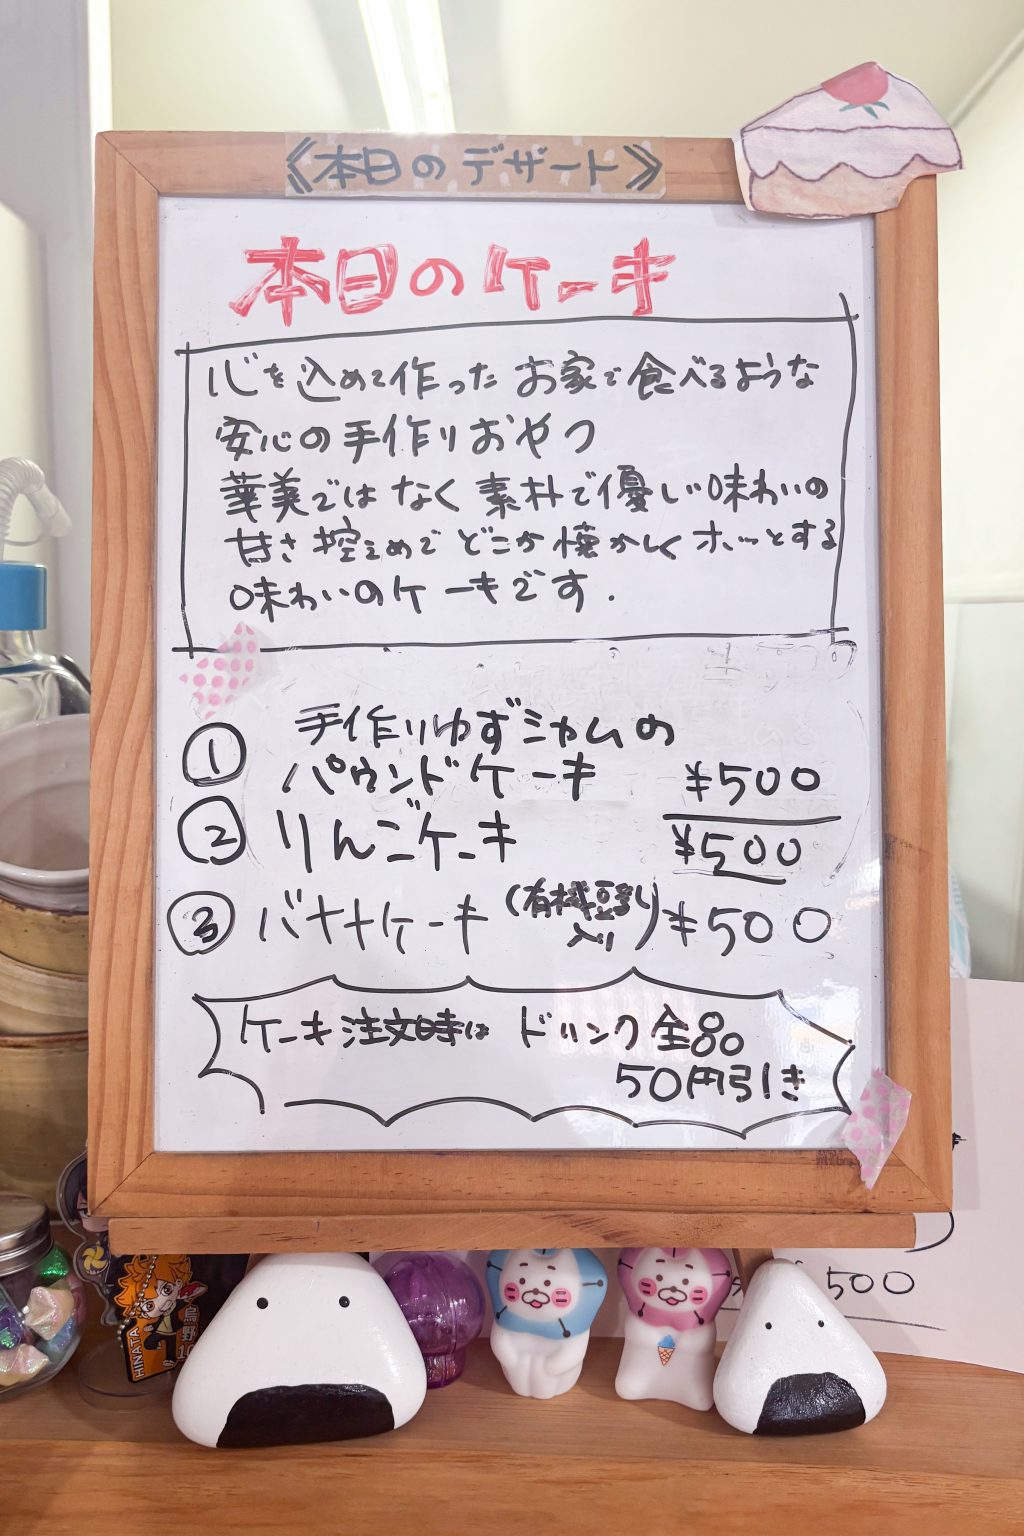 《本日のデザート》
本日のケーキ
心を込めて作ったお家で食べるような
安心の手作りおやつ
華美ではなく素朴で優しい味わいの
甘さ控えめでどこか懐かしくホッとする
味わいのケーキです.
① 手作りゆずジャムの
パウンドケーキ ¥500
② りんごケーキ ¥500
③ バナナケーキ (有機豆乳入り) ¥500
ケーキ注文時は ドリンク全品
50円引き
HINATA
烏野
10
500